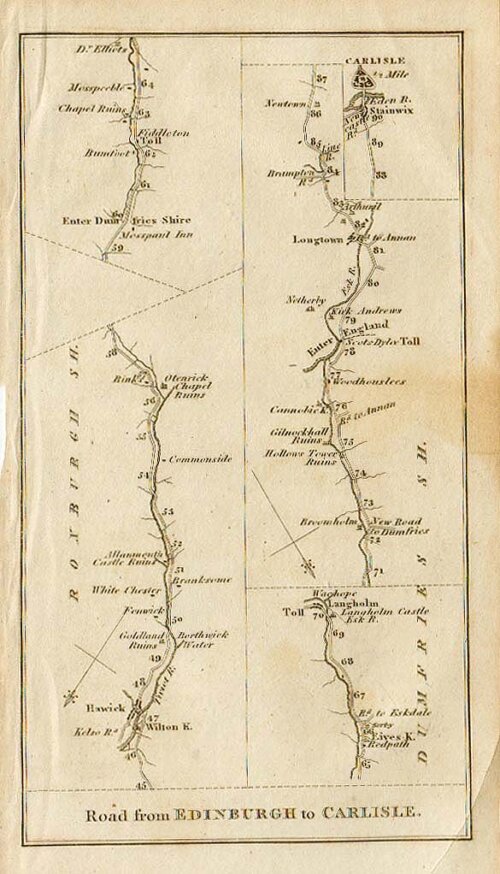 Dr. Elliots
64
Mosspeeble
Chapel Ruins
63
Fiddleton
Toll
Bumfoot
62
61
Enter Dumfries Shire
60
Mosspaul Inn
59
58
Rink
57
Otenrick
Chapel
Ruins
56
55
Commonside
54
53
52
Allanmouth
Castle Ruins
51
Branksome
White Chester
Fenwick
50
Goldland
Ruins
Borthwick
Water
49
48
Tiviot R.
Hawick
47
Wilton K.
Kelso Rd.
46
45
ROXBURGH SH.
87
Newtown
86
85
Line
R.
Brampton
Rd.
84
83
Arthuret
82
Longtown
Rd. to Annan
81
80
Esk R.
Netherby
Kirk Andrews
79
Enter England
Scots Dyke Toll
78
77
Woodhouslees
Cannobie K.
76
Rd. to Annan
Gilnockhall
Ruins
75
Hollows Tower
Ruins
74
73
Broomholm
New Road
to Dumfries
72
71
CARLISLE
½ Mile
Eden R.
Stainwix
New
castle
Rd.
90
89
88
Wachope
Langholm
Toll
70
Langholm Castle
Esk R.
69
68
67
Rd. to Eskdale
Kirk
Eives K.
Redpath
65
DUMFRIES SH.
Road from EDINBURGH to CARLISLE.